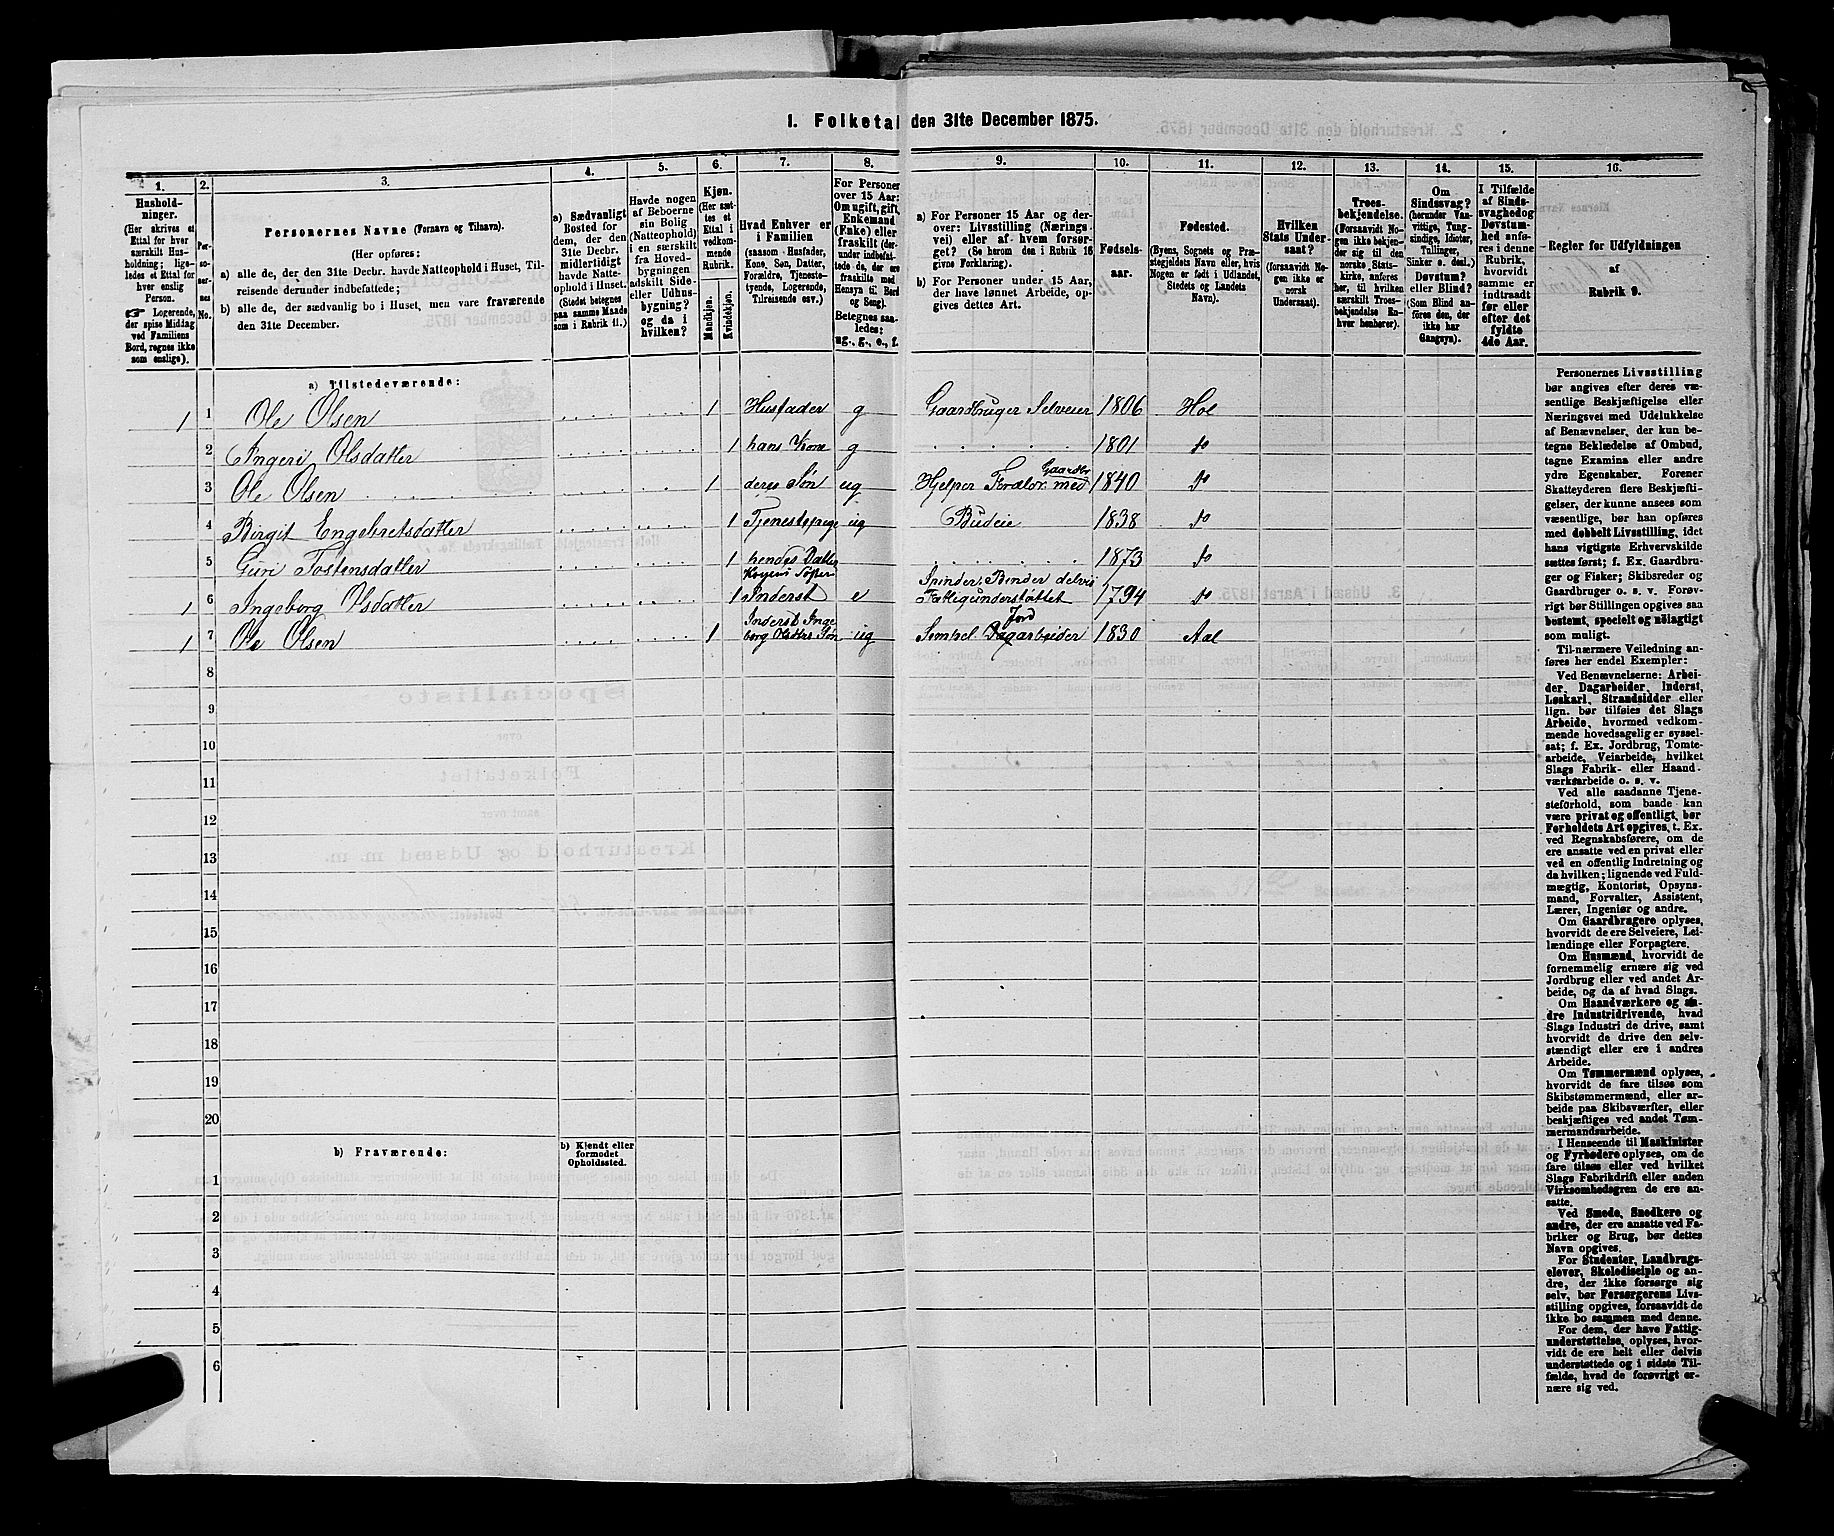 1. Folketal den 31te December 1875.
1.
Hushold-
ninger.
(Her skrives et
Ettal for hver
særskilt Hus-
holdning; lige-
ledes et Ettal for
hver enslig
Person.
☞ Logerende,
der spise Middag
ved Familiens
Bord, regnes ikke
som enslige).
2.
Per-
so-
ner-
nes
No.
3.
Personernes Navne (Fornavn og Tilnavn).
(Her opføres:
a) alle de, der den 31te Decbr. havde Natteophold i Huset, Til-
reisende derunder indbefattede;
b) alle de, der sædvanlig bo i Huset, men vare fraværende
den 31te December.
4.
a) Sædvanligt
Bosted for
dem, der den
31te Decbr.
midlertidigt
havde Natte-
ophold i Huset.
(Stedet betegnes
paa samme Maade
som i Rubrik 11.)
5.
Havde nogen
af Beboerne
sin Bolig
(Natteophold)
i en særskilt
fra Hoved-
bygningen
adskilt Side-
eller Udhus-
bygning?
og da i
hvilken?
6.
Kjøn.
(Her sæt-
tes et
Ettal i
vedkom-
mende
Rubrik.
Mandkjøn.
Kvindekjøn.
7.
Hvad Enhver er
i Familien
(saasom Husfader,
Kone, Søn, Datter,
Forældre, Tjeneste-
tyende, Logerende,
Tilreisende osv.)
8.
For Personer
over 15 Aar:
Om ugift, gift,
Enkemand
(Enke) eller
fraskilt (der-
under indbefat-
tede de, der ere
fraskilte med
Hensyn til Bord
og Seng).
Betegnes saa-
ledes:
ug., g., e., f.
9.
a) For Personer 15 Aar og der-
over: Livsstilling (Nærings-
vei) eller af hvem forsør-
get? (Se herom den i Rubrik 16
givne Forklaring).
b) For Personer under 15 Aar,
der have lønnet Arbeide, op-
gives dettes Art.
10.
Fødsels-
aar.
11.
Fødested.
(Byens, Sognets og Præ-
stegjeldets Navn eller, hvis
Nogen er født i Udlandet,
Stedets og Landets
Navn).
12.
Hvilken
Stats Under-
saat?
(forsaavidt No-
gen ikke er
norsk
Undersaat).
13.
Troes-
bekjendelse.
(Forsaavidt No-
gen ikke bekjen-
der sig til den
norske Stats-
kirke, anføres
her, til hvilken
særskilt Troes-
bekjendelse En-
hver henhører).
14.
Om
Sindssvag?
(herunder Van-
vittige, Tung-
sindige, Idioter,
Tullinger,
Sinker o. desl.)
Døvstum?
eller Blind?
(Som Blind an-
føres den, der
ikke har
Gangsyn).
15.
I Tilfælde
af Sinds-
svaghed og
Døvstum-
hed anfø-
res i denne
Rubrik,
hvorvidt
samme er
indtraadt
før eller
efter det
fyldte
4de Aar.
16.
Regler for Udfyldningen
af
Rubrik 9.
a) Tilstedeværende:
1 1 Ole Olsen 1 Husfader g Gaardbruger Selveier 1806 Hol
2 Ingeri Olsdatter 1 hans Kone g 1801 do
3 Ole Olsen 1 deres Søn ug Hjelper Foræld. med Gaardbr 1840 do
4 Birgit Engebretsdatter 1 Tjenestepige ug Budeie 1838 do
5 Guri Tostensdatter 1 hendes Datter 1873 do
1 6 Ingeborg Olsdatter 1 Inderst e Spinder, Binder delvis Fattigunderstøttet 1794 do
1 7 Ole Olsen 1 Inderst Inge
borg Olsdtrs Søn ug Simpel Jord Dagarbeider 1830 Aal
8
9
10
11
12
13
14
15
16
17
18
19
20
b) Fraværende:
b) Kjendt eller
formodet
Opholdssted.
1
2
3
4
5
6
Personernes Livsstilling
bør angives efter deres væ-
sentlige Beskjæftigelse eller
Næringsvei med Udelukkelse
af Benævnelser, der kun be-
tegne Beklædelse af Ombud,
tagne Examina eller andre
ydre Egenskaber. Forener
Skatteyderen flere Beskjæfti-
gelser, der kunne ansees som
væsentlige, bør han opføres
med dobbelt Livsstilling, idet
hans vigtigste Erhvervskilde
sættes først; f. Ex. Gaardbru-
ger og Fisker; Skibsreder og
Gaardbruger o. s. v. Forøv-
rigt bør Stillingen opgives saa
bestemt, specielt og nøiagtigt
som muligt.
Til nærmere Veiledning an-
føres her endel Exempler:
Ved Benævnelserne: Arbei-
der, Dagarbeider, Inderst,
Løskarl, Strandsidder eller
lign. bør tilføies det Slags
Arbeide, hvormed vedkom-
mende hovedsagelig er syssel-
sat; f. Ex. Jordbrug, Tomte-
arbeide, Veiarbeide, hvilket
Slags Fabrik- eller Haand-
værksarbeide o. s. v.
Ved alle saadanne Tjene-
steforhold, som baade kan
være privat og offentligt, bør
Forholdets Art opgives, t. Ex.
ved Regnskabsførere, om de
ere ansatte ved en privat eller
ved en offentlig Indretning og
da hvilken; lignende ved Fuld-
mægtig, Kontorist, Opsyns-
mand, Forvalter, Assistent,
Lærer, Ingeniør og andre.
Om Gaardbrugere oplyses,
hvorvidt de ere Selveiere, Lei-
lændinge eller Forpagtere.
Om Husmænd, hvorvidt de
fornemmelig ernære sig ved
Jordbrug eller ved andet Ar-
beide, og da af hvad Slags.
Om Haandværkere og an-
dre Industridrivende, hvad
Slags Industri de drive, samt
hvorvidt de drive den selv-
stændigt eller ere i andres
Arbeide.
Om Tømmermænd oplyses,
hvorvidt de fare tilsøs som
Skibstømmermænd, eller ar-
beide paa Skibsværfter, eller
beskjæftiges ved andet Tøm-
mermandsarbeide.
I Henseende til Maskinister
og Fyrbødere oplyses, om de
fare tilsøs eller ved hvilket
Slags Fabrikdrift eller anden
Virksomhedsgren de ere an-
satte.
Ved Smede, Snedkere og
andre, der ere ansatte ved Fa-
briker og Brug, bør dettes
Navn opgives.
For Studenter, Landbrugs-
elever, Skoledisciple og an-
dre, der ikke forsørge sig
selv, bør Forsørgerens Livs-
stilling opgives, forsaavidt de
ikke bo sammen med denne.
For dem, der have Fattig-
understøttelse, oplyses, hvor-
vidt de ere helt eller delvis
understøttede og i sidste Til-
fælde, hvad de forøvrigt er-
nære sig ved.